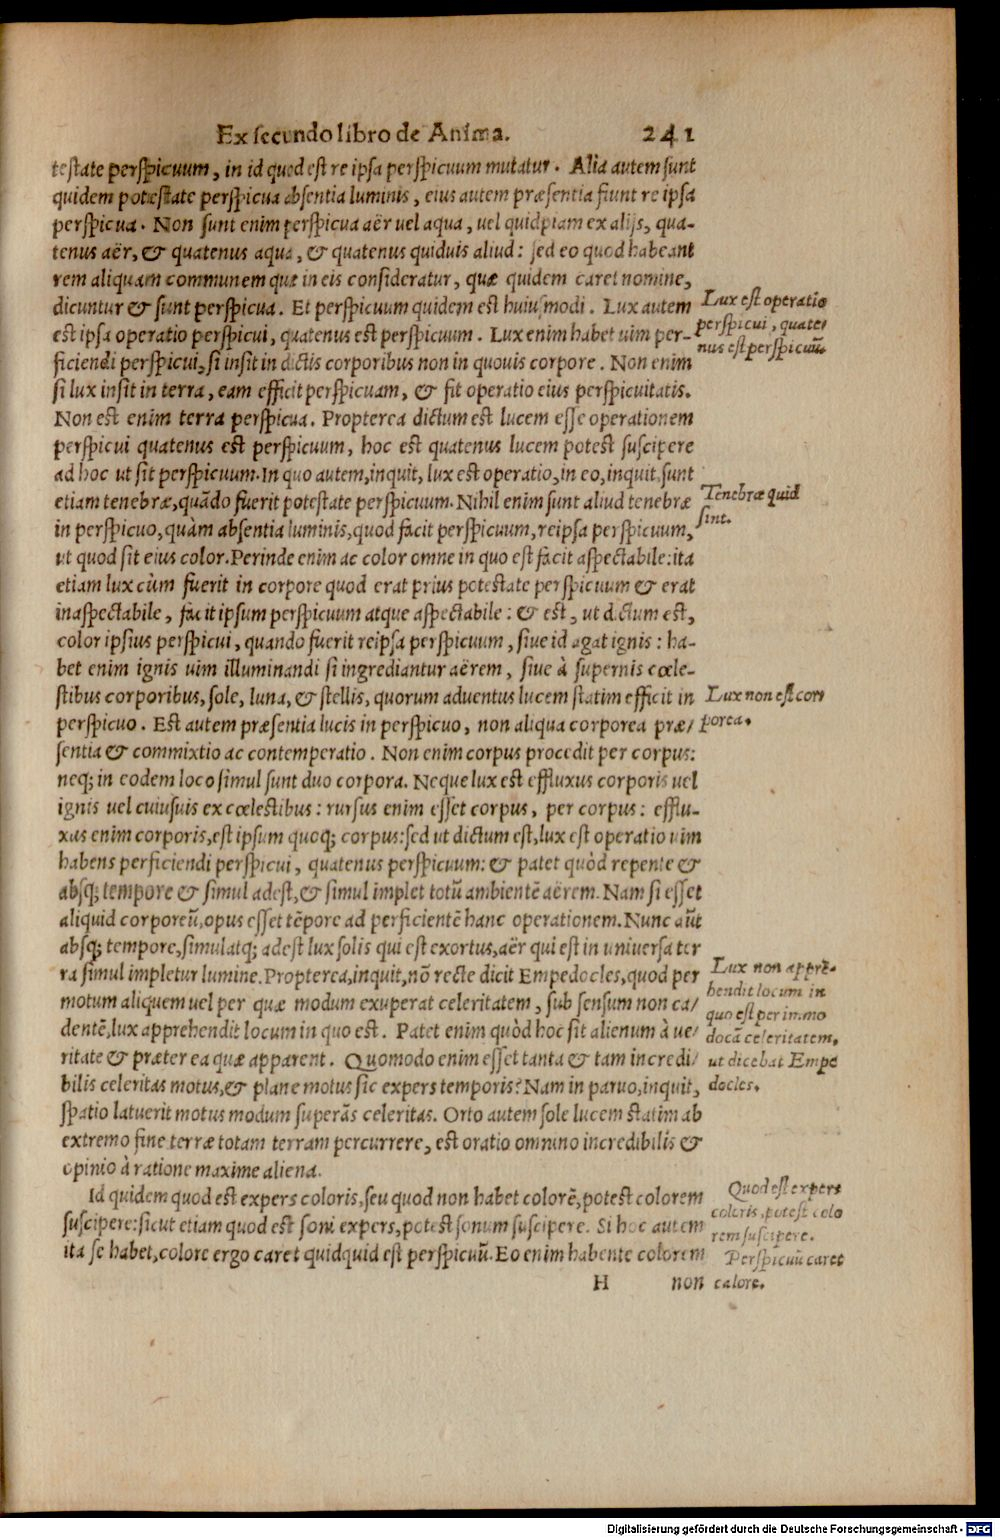 Ex secundo libro de Anima. 241
testate perspicuum, in id quod est re ipsa perspicuum mutatur. Alia autem sunt
quidem potæstate perspicua absentia luminis, eius autem præsentia fiunt re ipsa
perspicua. Non sunt enim perspicua aër vel aqua, vel quidpiam ex alijs, qua-
tenus aër, & quatenus aqua, & quatenus quiduis aliud: sed eo quod habeant
rem aliquam communem quæ in eis consideratur, quæ quidem caret nomine,
dicuntur & sunt perspicua. Et perspicuum quidem est huiusmodi. Lux autem
est ipsa operatio perspicui, quatenus est perspicuum. Lux enim habet uim per-
ficiendi perspicui, si insit in dictis corporibus non in quouis corpore. Non enim
si lux insit in terra, eam efficit perspicuam, & fit operatio eius perspicuitatis.
Non est enim terra perspicua. Propterea dictum est lucem esse operationem
perspicui quatenus est perspicuum, hoc est quatenus lucem potest suscipere
ad hoc ut sit perspicuum. In quo autem, inquit, lux est operatio, in eo, inquit, sunt
etiam tenebræ, quãdo fuerit potestate perspicuum. Nihil enim sunt aliud tenebræ
in perspicuo, quàm absentia luminis, quod facit perspicuum, reipsa perspicuum,
ut quod sit eius color. Perinde enim ac color omne in quo est facit aspectabile: ita
etiam lux cùm fuerit in corpore quod erat prius potestate perspicuum & erat
inaspectabile, facit ipsum perspicuum atque aspectabile: & est, ut dictum est,
color ipsius perspicui, quando fuerit reipsa perspicuum, siue id agat ignis: ha-
bet enim ignis uim illuminandi si ingrediantur aërem, siue à supernis cœle-
stibus corporibus, sole, luna, & stellis, quorum aduentus lucem statim efficit in
perspicuo. Est autem præsentia lucis in perspicuo, non aliqua corporea præ/
sentia & commixtio ac contemperatio. Non enim corpus procedit per corpus:
neq; in eodem loco simul sunt duo corpora. Neque lux est effluxus corporis uel
ignis uel cuiusuis ex cœlestibus: rursus enim esset corpus, per corpus: efflu-
xus enim corporis, est ipsum quoq; corpus: sed ut dictum est, lux est operatio uim
habens perficiendi perspicui, quatenus perspicuum: & patet quòd repente &
absq; tempore & simul adest, & simul implet totũ ambientẽ aërem. Nam si esset
aliquid corporeũ, opus esset tẽpore ad perficientẽ hanc operationem. Nunc aũt
absq; tempore, simulatq; adest lux solis qui est exortus, aër qui est in uniuersa ter
ra simul impletur lumine. Propterea, inquit, nõ recte dicit Empedocles, quod per
motum aliquem uel per quæ modum exuperat celeritatem, sub sensum non ca/
dentẽ, lux apprehendit locum in quo est. Patet enim quòd hoc sit alienum à ue/
ritate & præter ea quæ apparent. Quomodo enim esset tanta & tam incredi/
bilis celeritas motus, & plane motus sic expers temporis? Nam in paruo, inquit,
spatio latuerit motus modum superãs celeritas. Orto autem sole lucem statim ab
extremo fine terræ totam terram percurrere, est oratio omnino incredibilis &
opinio à ratione maxime aliena.
Id quidem quod est expers coloris, seu quod non habet colorẽ, potest colorem
suscipere: sicut etiam quod est soni expers, potest sonum suscipere. Si hoc autem
ita se habet, colore ergo caret quidquid est perspicuũ. Eo enim habente colorem
H non
Lux est operatio
perspicui, quate/
nus est perspicuũ.
Tenebræ quid
sint.
Lux non est cor/
porea.
Lux non apprẽ-
hendit locum in
quo est per immo
docã celeritatem,
ut dicebat Empe
docles.
Quod est expers
coloris, potest colo
rem suscipere.
Perspicuũ caret
calore.
Digitalisierung gefördert durch die Deutsche Forschungsgemeinschaft - DFG